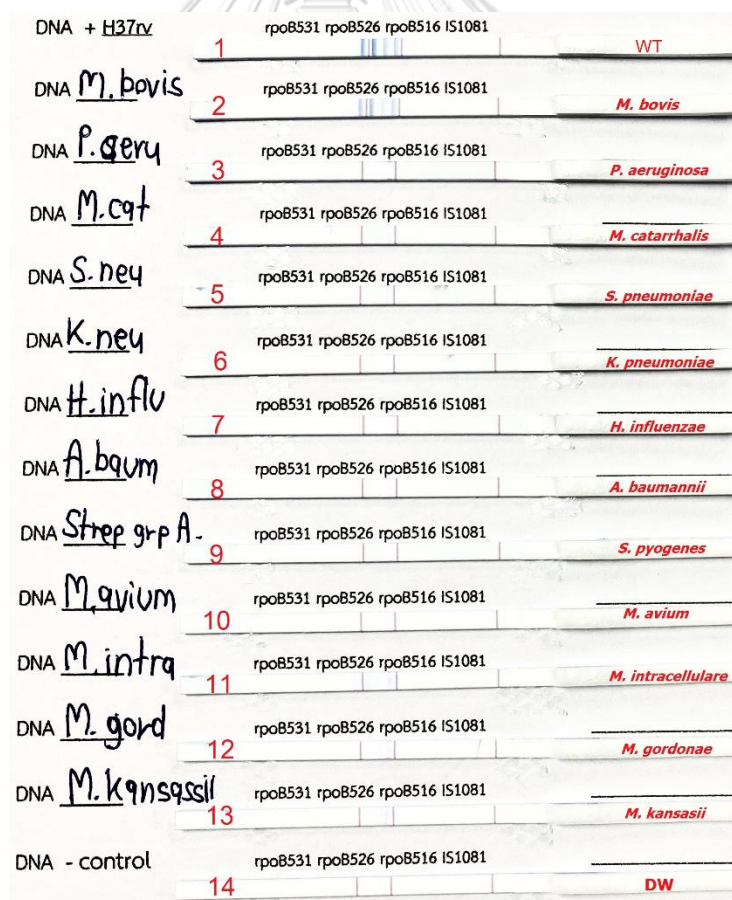 DNA + H37rv rpoB531 rpoB526 rpoB516 IS1081
1 WT
DNA M. bovis rpoB531 rpoB526 rpoB516 IS1081
2 M. bovis
DNA P. aeru rpoB531 rpoB526 rpoB516 IS1081
3 P. aeruginosa
DNA M. cat rpoB531 rpoB526 rpoB516 IS1081
4 M. catarrhalis
DNA S. neu rpoB531 rpoB526 rpoB516 IS1081
5 S. pneumoniae
DNA K. neu rpoB531 rpoB526 rpoB516 IS1081
6 K. pneumoniae
DNA H. influ rpoB531 rpoB526 rpoB516 IS1081
7 H. influenzae
DNA A. baum rpoB531 rpoB526 rpoB516 IS1081
8 A. baumannii
DNA Strep grp A. rpoB531 rpoB526 rpoB516 IS1081
9 S. pyogenes
DNA M. avium rpoB531 rpoB526 rpoB516 IS1081
10 M. avium
DNA M. intra rpoB531 rpoB526 rpoB516 IS1081
11 M. intracellulare
DNA M. gord rpoB531 rpoB526 rpoB516 IS1081
12 M. gordonae
DNA M. kansassii rpoB531 rpoB526 rpoB516 IS1081
13 M. kansasii
DNA - control rpoB531 rpoB526 rpoB516 IS1081
14 DW